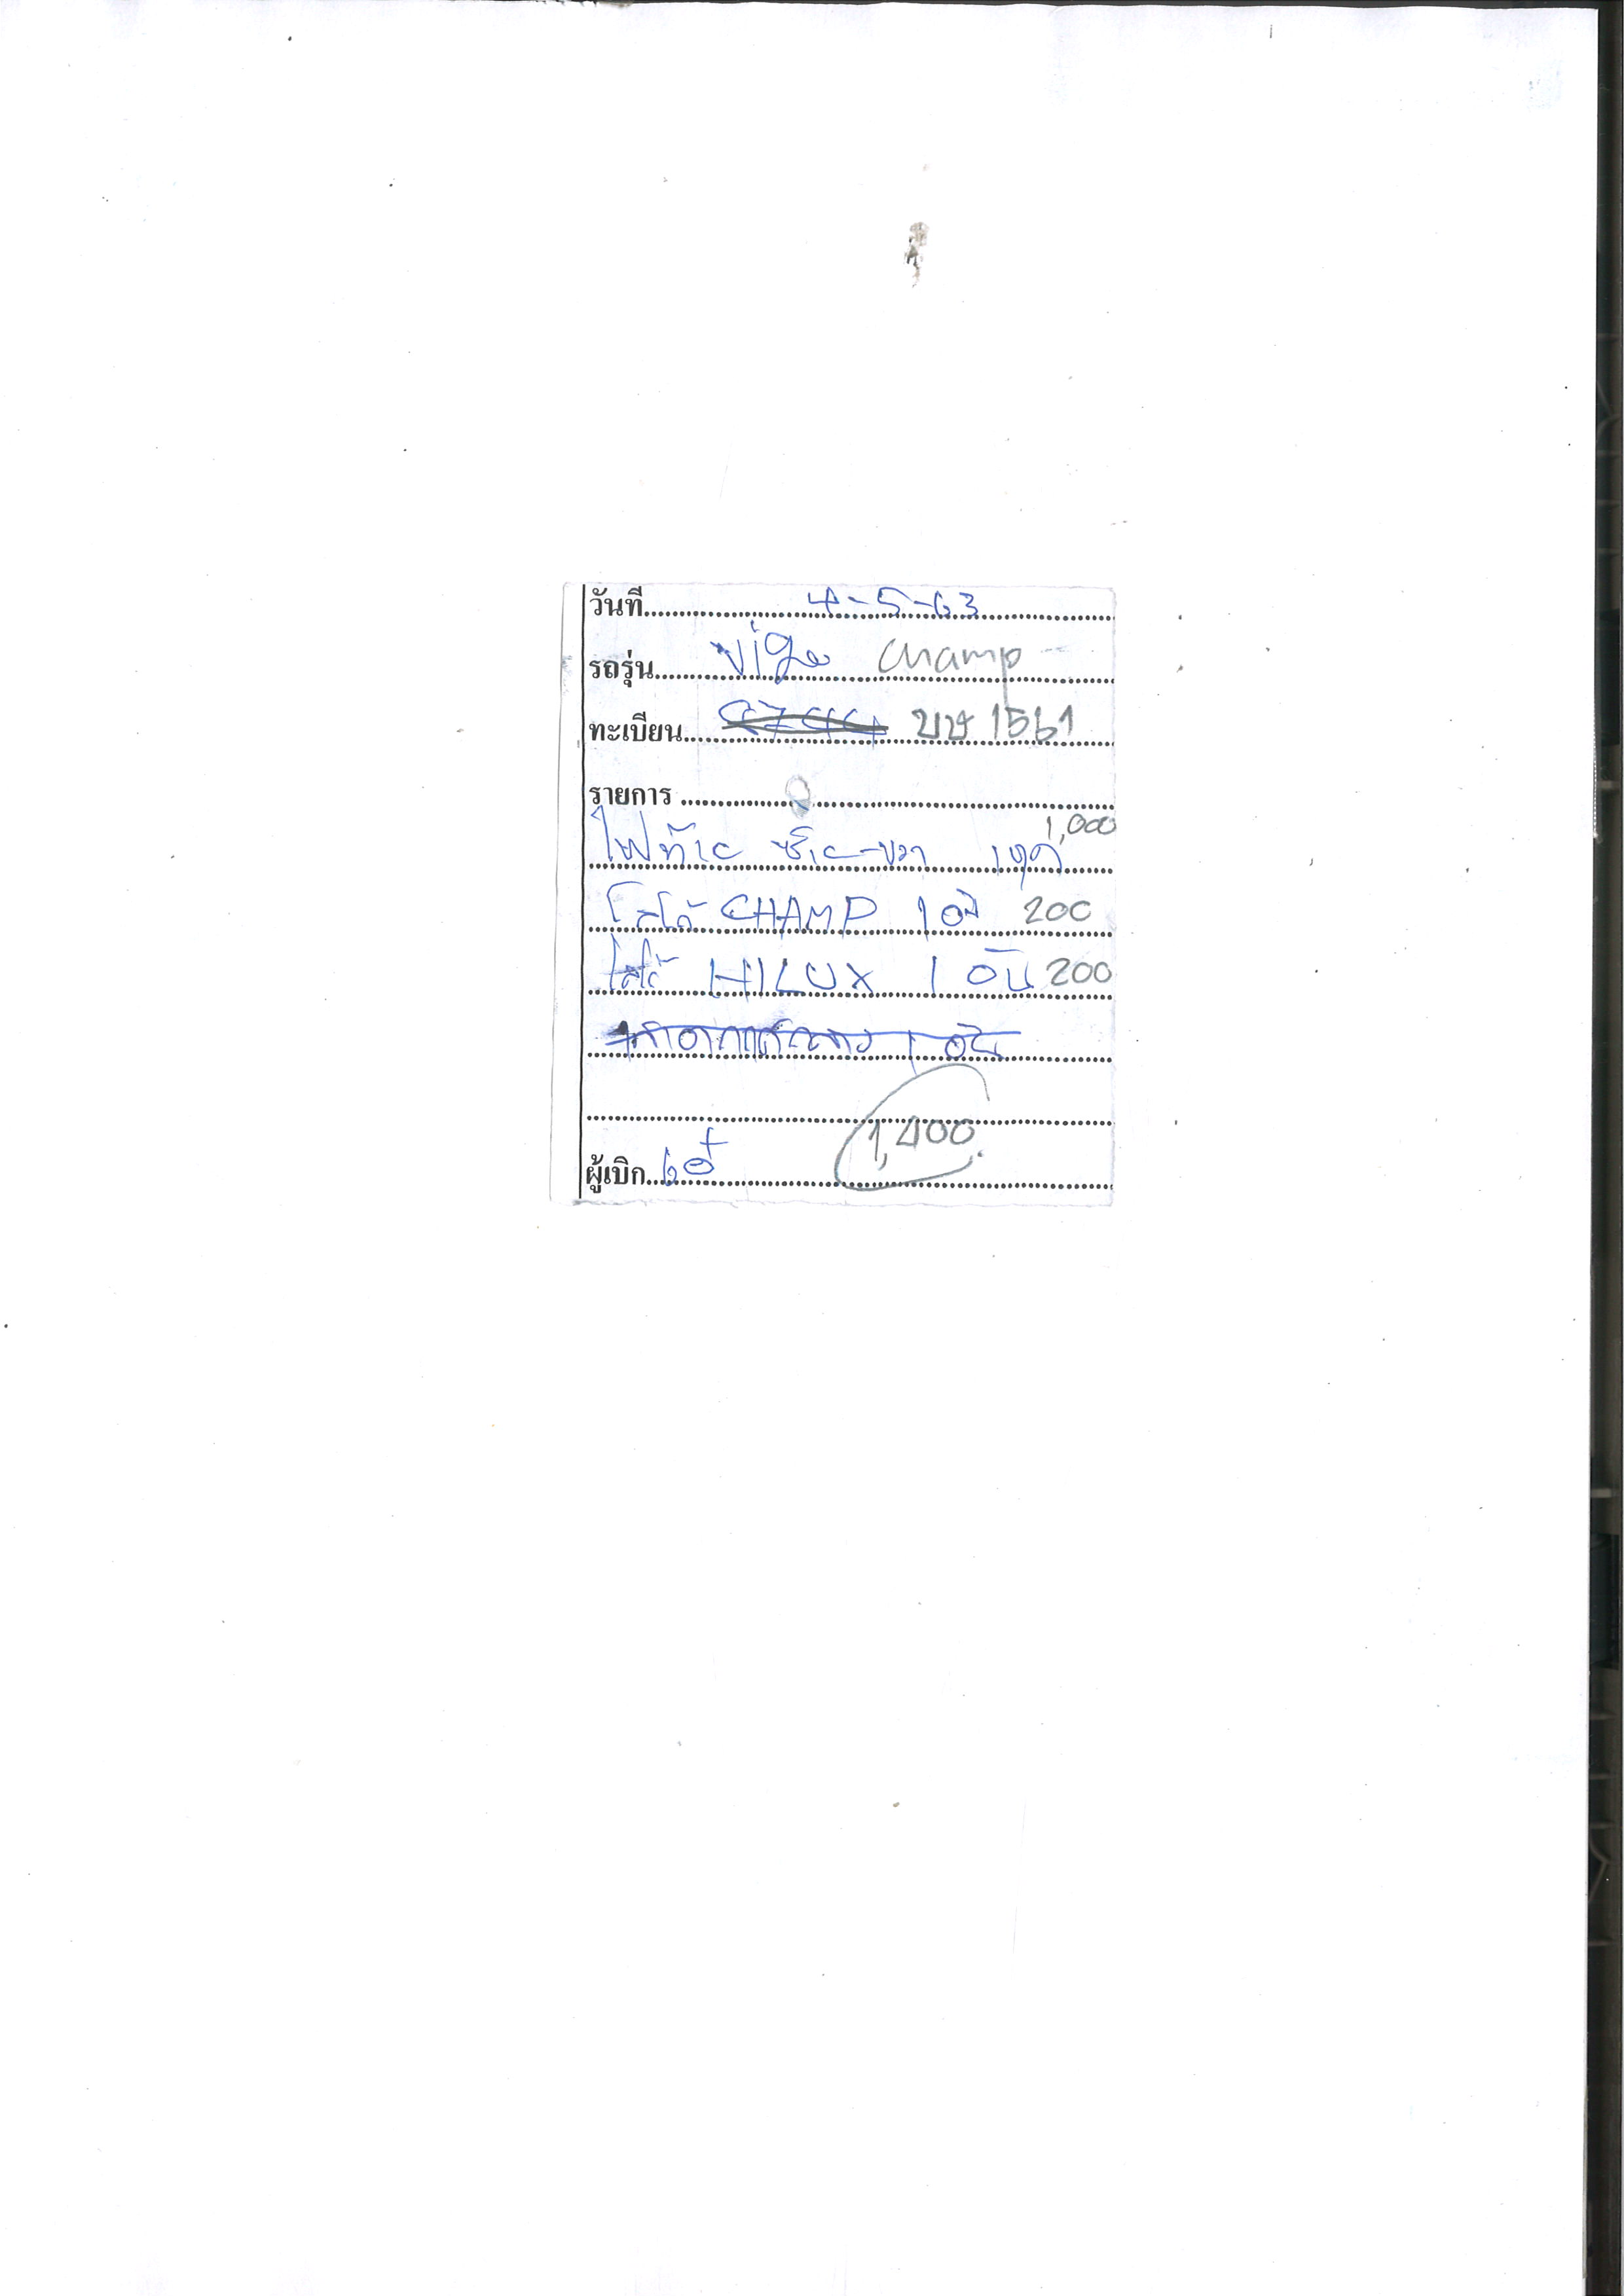 วันที่ 4-5-63
รถรุ่น Vigo Champ
ทะเบียน บษ 1561
รายการ
1,000
ไฟท้าย ซ้าย-ขวา 1ชุด
โลโก้ CHAMP 1 อัน 200
โลโก้ HILUX 1 อัน 200
1,400
ผู้เบิก